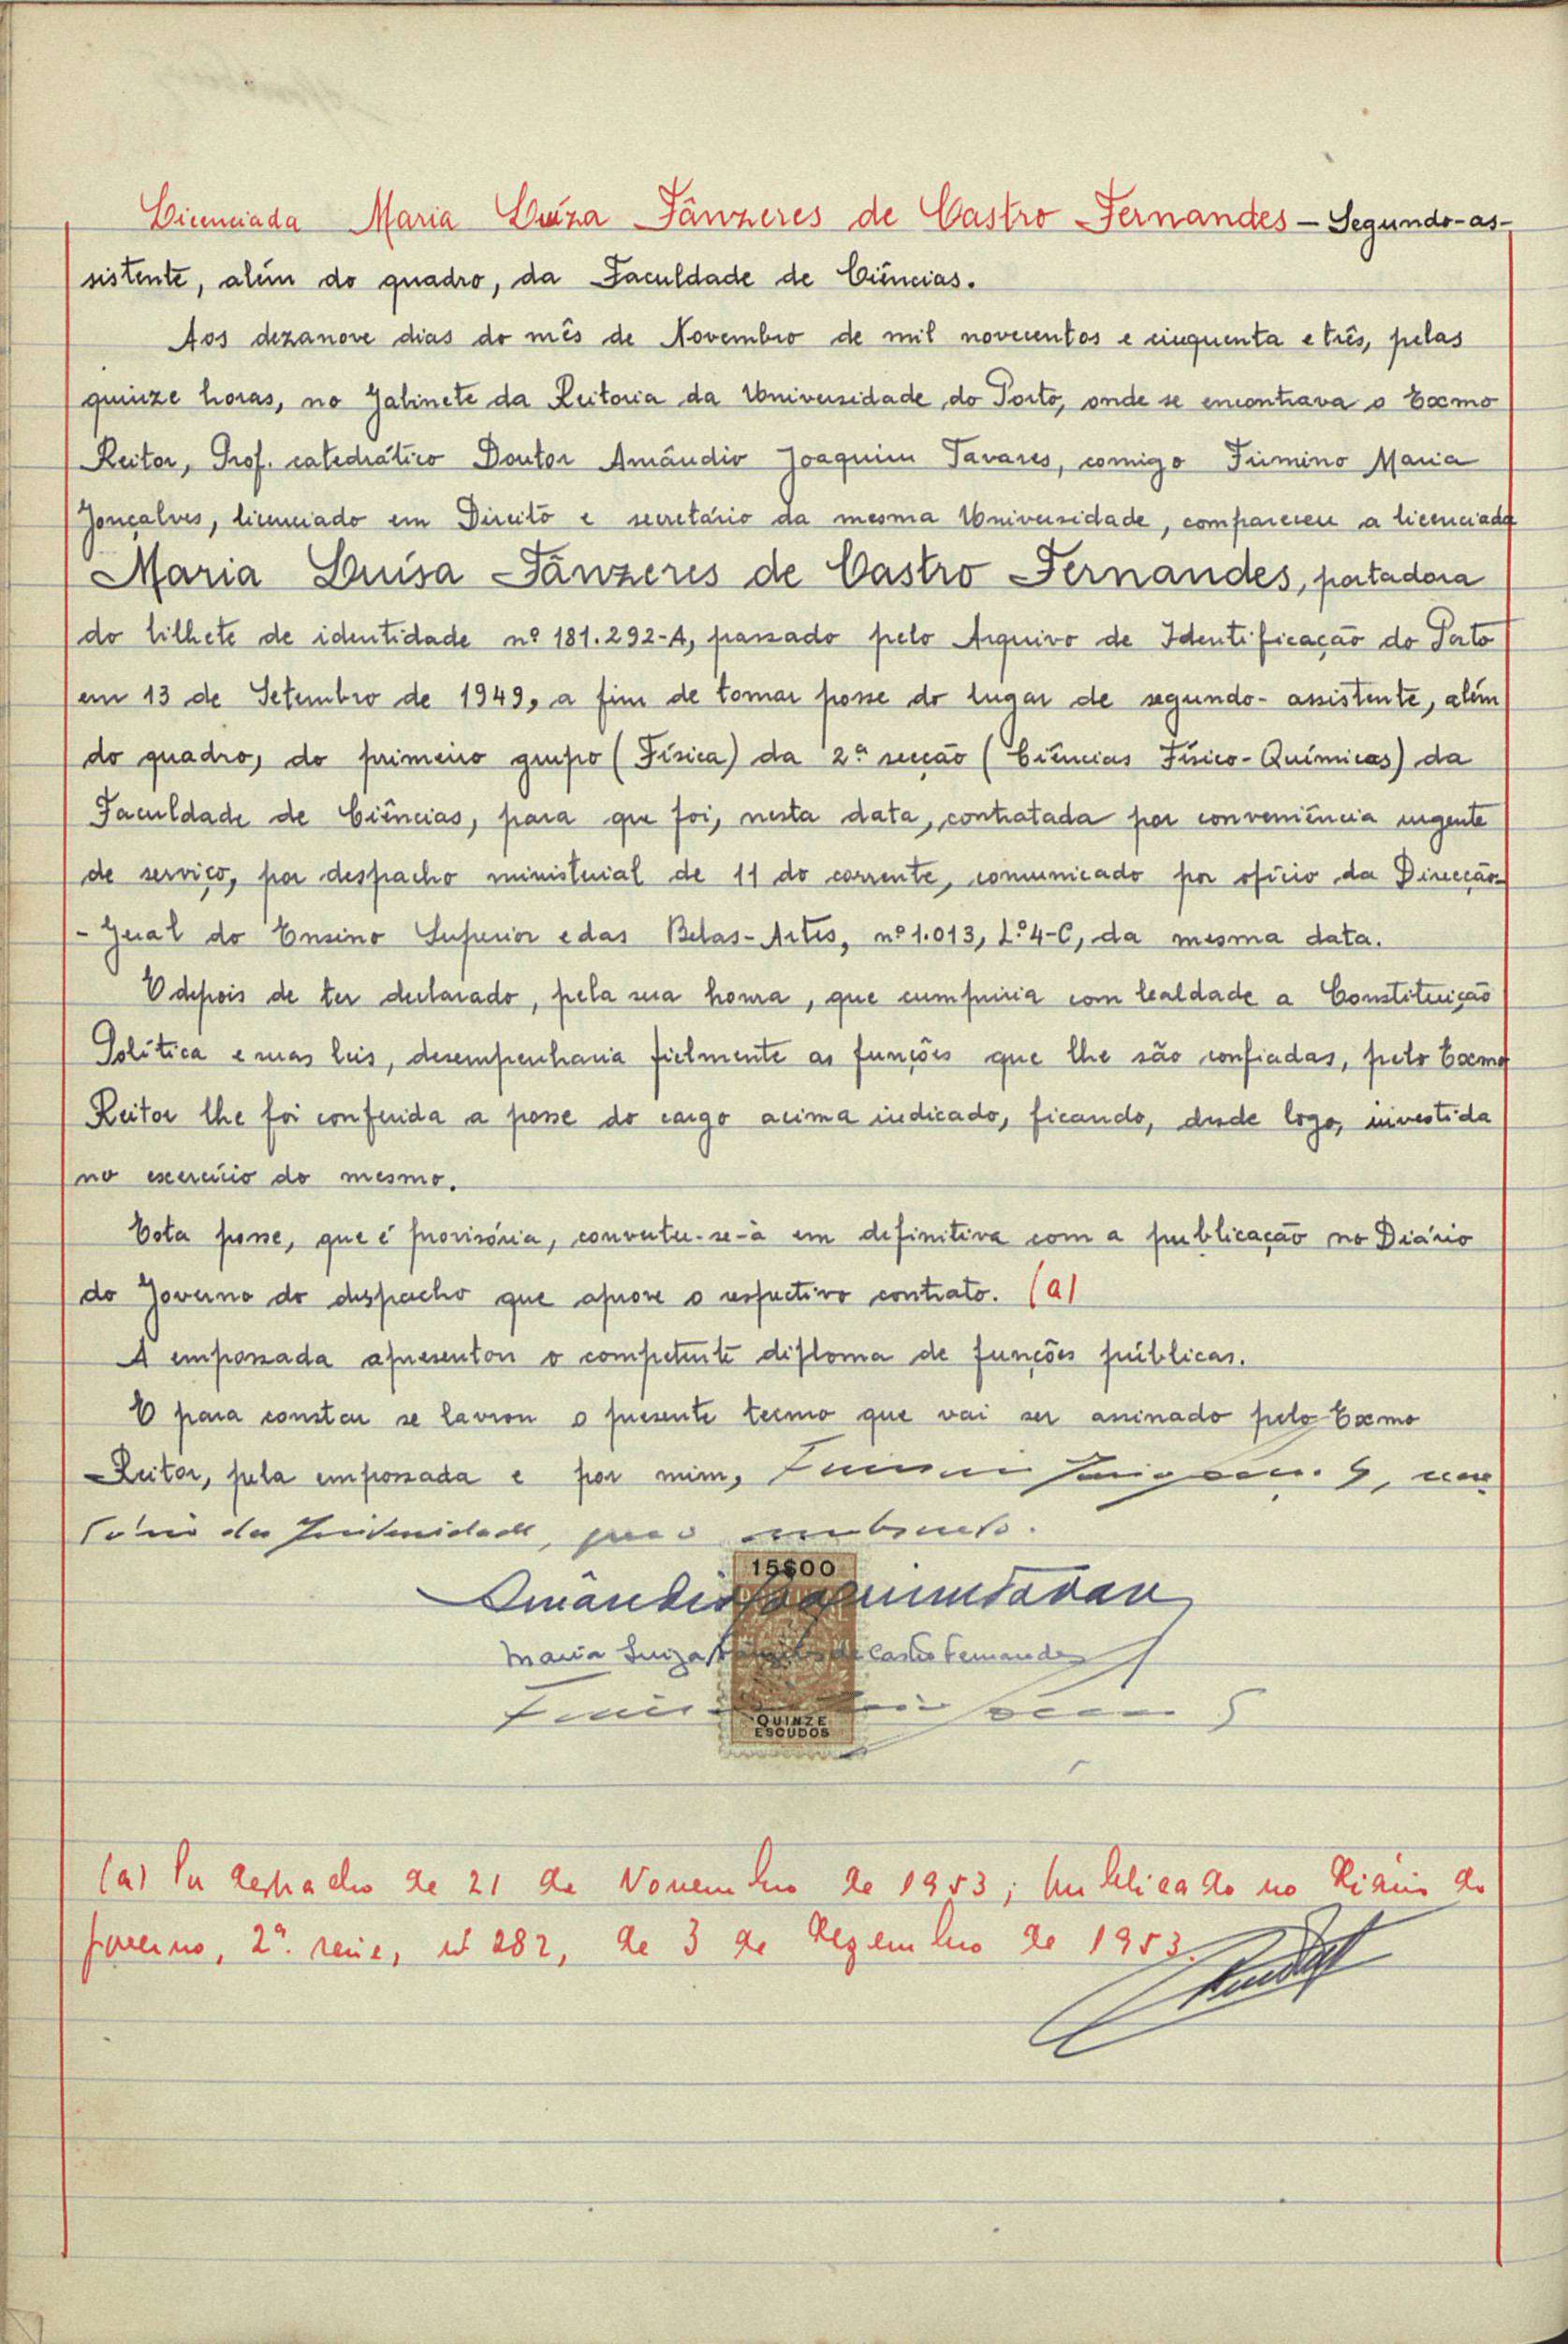 Licenciada Maria Luíza Tânzeres de Castro Fernandes – Segundo-as-
sistente, além do quadro, da Faculdade de Ciências.
Aos dezanove dias do mês de Novembro de mil novecentos e cinquenta e três, pelas
quinze horas, no Gabinete da Reitoria da Universidade do Porto, onde se encontrava o Exmo
Reitor, Prof. catedrático Doutor Amândio Joaquim Tavares, comigo Firmino Maria
Gonçalves, licenciado em Direito e secretário da mesma Universidade, compareceu a licenciada
Maria Luísa Tânzeres de Castro Fernandes, portadora
do bilhete de identidade nº 181.292-A, passado pelo Arquivo de Identificação do Porto
em 13 de Setembro de 1949, a fim de tomar posse do lugar de segundo-assistente, além
do quadro, do primeiro grupo (Física) da 2ª secção (Ciências Físico-Químicas) da
Faculdade de Ciências, para que foi, nesta data, contratada por conveniência urgente
de serviço, por despacho ministerial de 11 do corrente, comunicado por ofício da Direcção-
-Geral do Ensino Superior e das Belas-Artes, nº 1.013, L.º 4-C, da mesma data.
E depois de ter declarado, pela sua honra, que cumpriria com lealdade a Constituição
Política e suas leis, desempenharia fielmente as funções que lhe são confiadas, pelo Exmo
Reitor lhe foi conferida a posse do cargo acima indicado, ficando, desde logo, investida
no exercício do mesmo.
Esta posse, que é provisória, converter-se-à em definitiva com a publicação no Diário
do Governo do despacho que aprove o respectivo contrato. (a)
A empossada apresentou o competente diploma de funções públicas.
E para constar se lavrou o presente termo que vai ser assinado pelo Exmo
Reitor, pela empossada e por mim,
da Universidade, que o subscrevo.
15$00
Amândio Joaquim Tavares
Maria Luiza Tânzeres de Castro Fernandes
QUINZE
ESCUDOS
(a) Por despacho de 21 de Novembro de 1953; publicado no Diário do
Governo, 2ª. série, nº 282, de 3 de Dezembro de 1953.